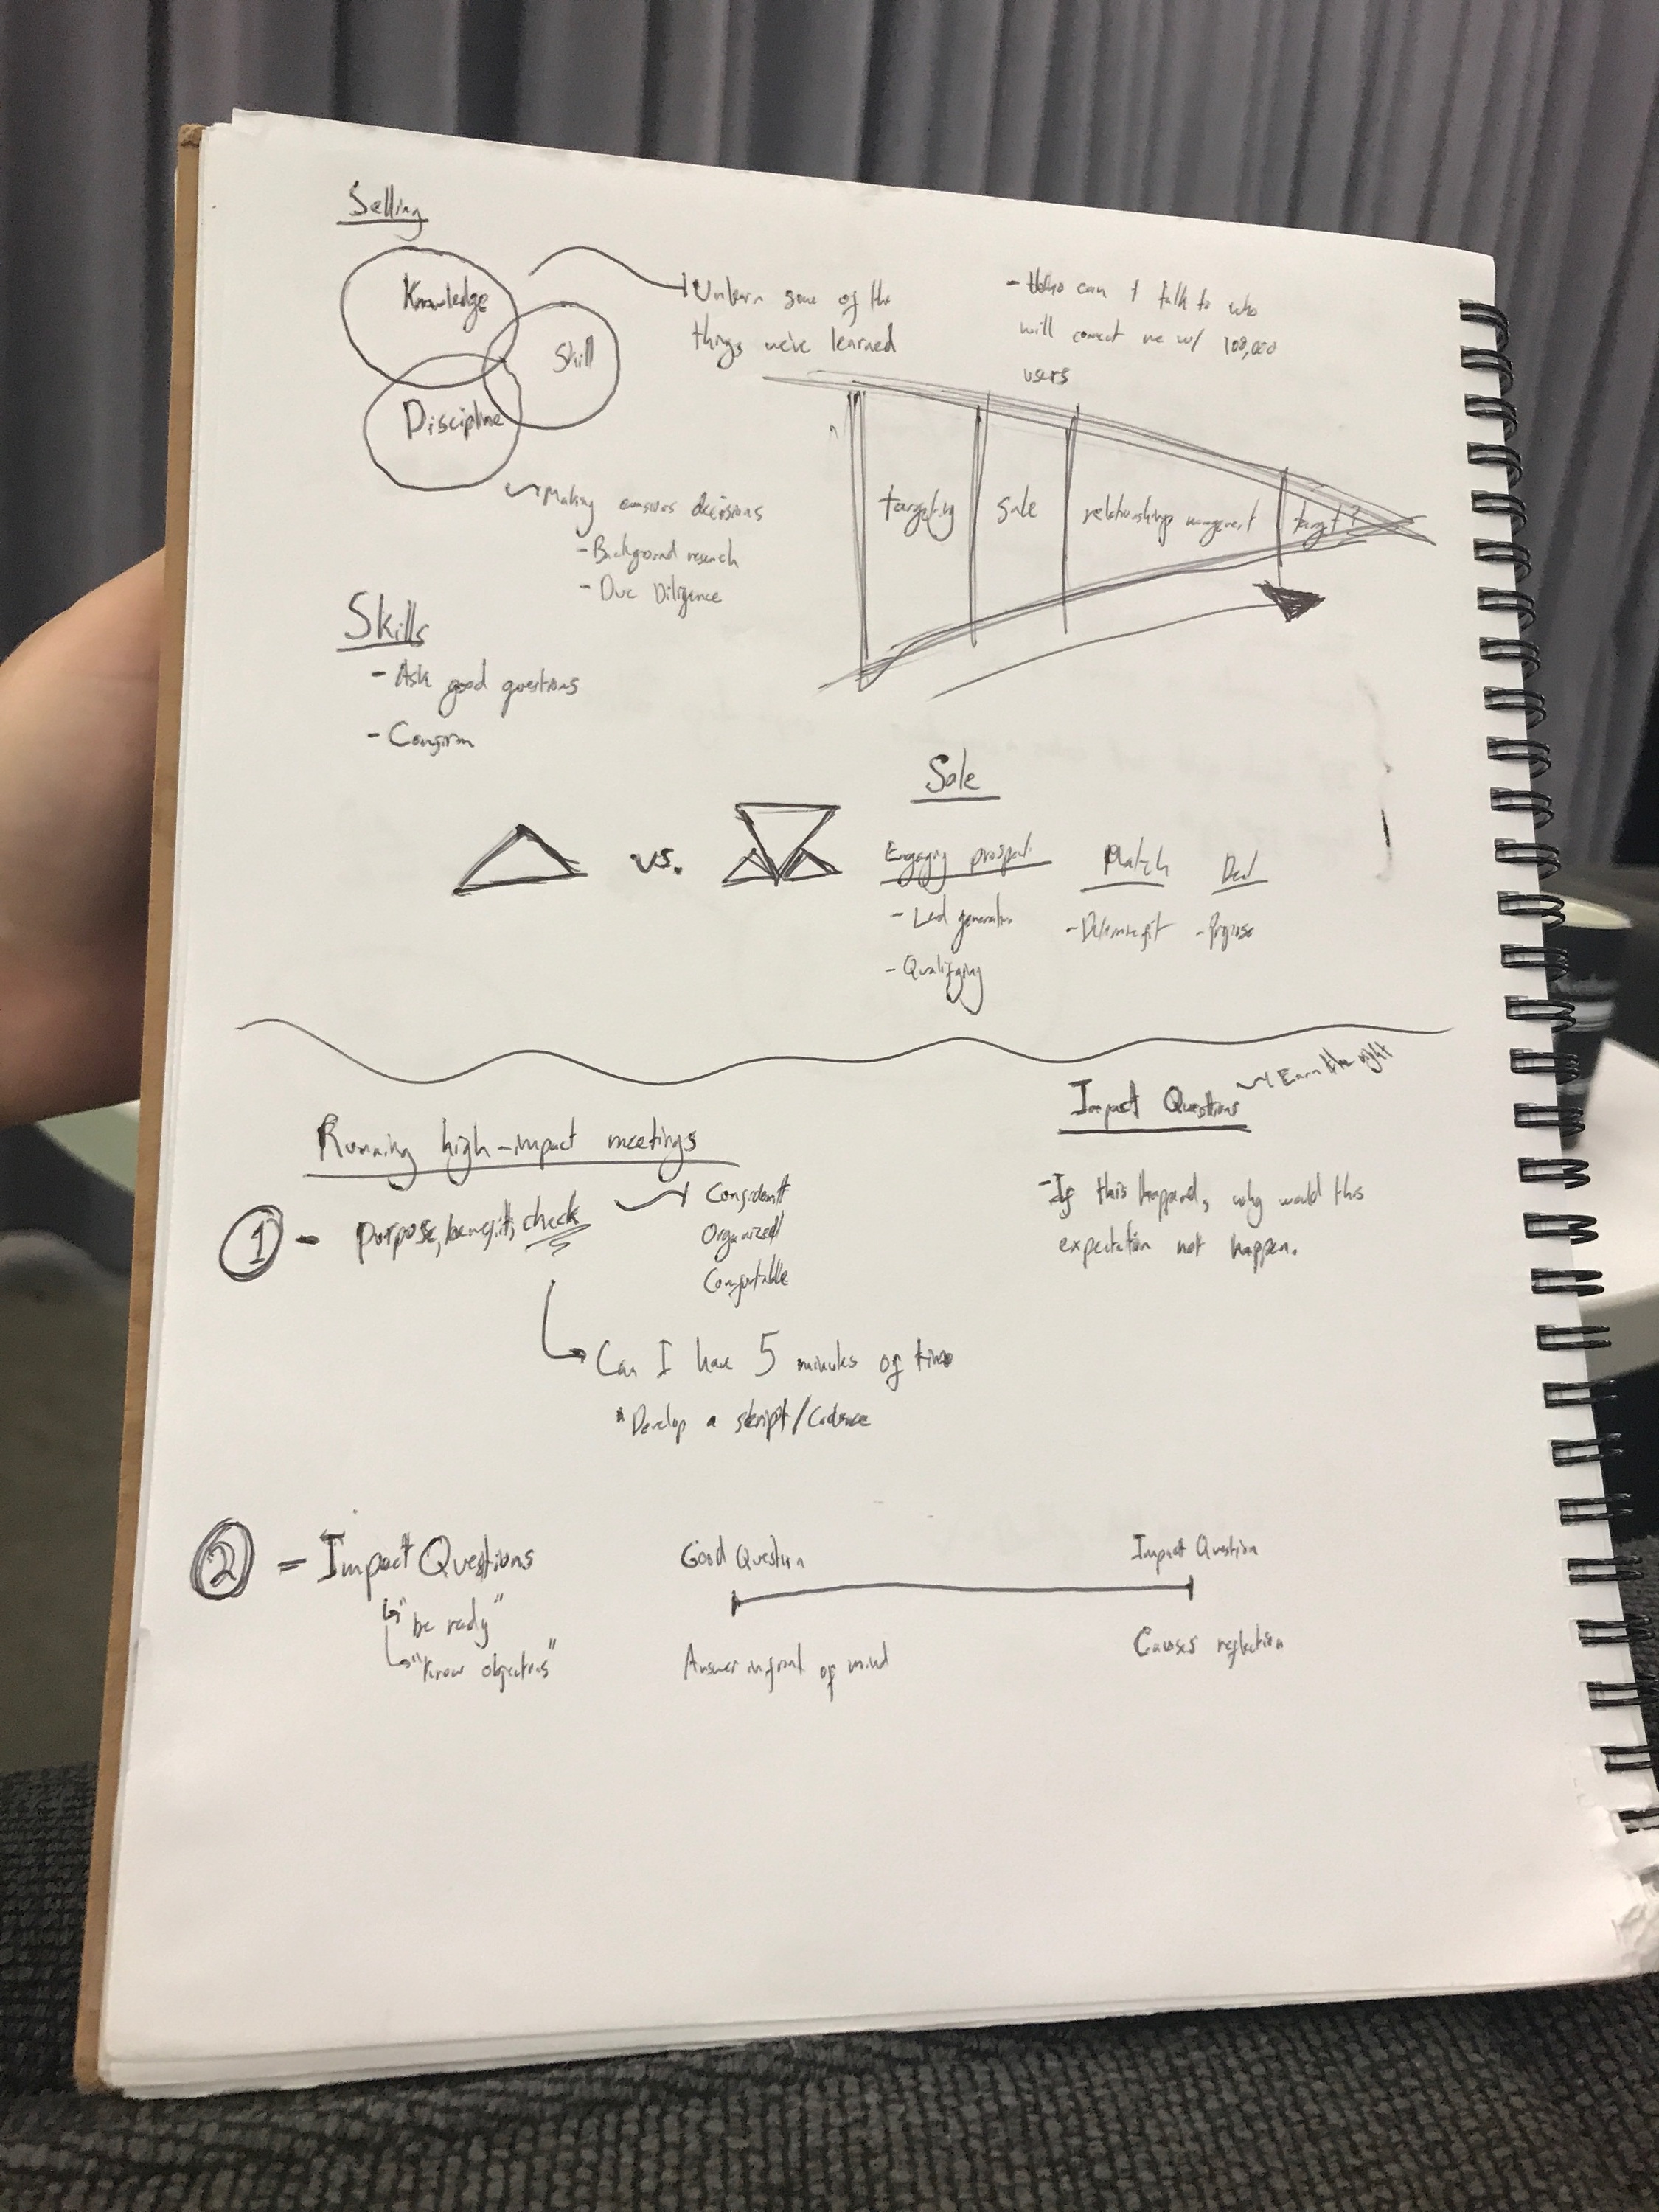 Selling
Knowledge
Skill
Discipline
Unlearn some of the
things we've learned
- Who can I talk to who
will connect me w/ 100,000
users
targeting
sale
relationship management
target?
Making decisions
- Background research
- Due Diligence
Skills
- Ask good questions
- Confirm
vs.
Sale
Engaging prospect
- Lead generation
- Qualifying
Match
- Determine fit
Deal
- Propose
Running high-impact meetings
1 - Purpose, benefit, check
Confident
Organized
Comfortable
Can I have 5 minutes of time
* Develop a skript/Cadence
Impact Questions
Earn the right
- If this happened, why would this
expectation not happen.
2 - Impact Questions
"be ready"
"know objections"
Good Question
Impact Question
Answer in front of mind
Causes reflection